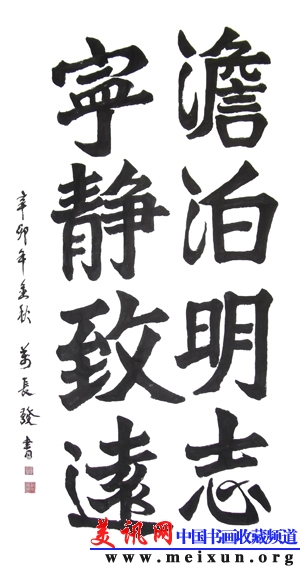 澹泊明志
寧静致遠
辛卯年金秋 萬長發書
美讯网
中国书画收藏频道
www.meixun.org